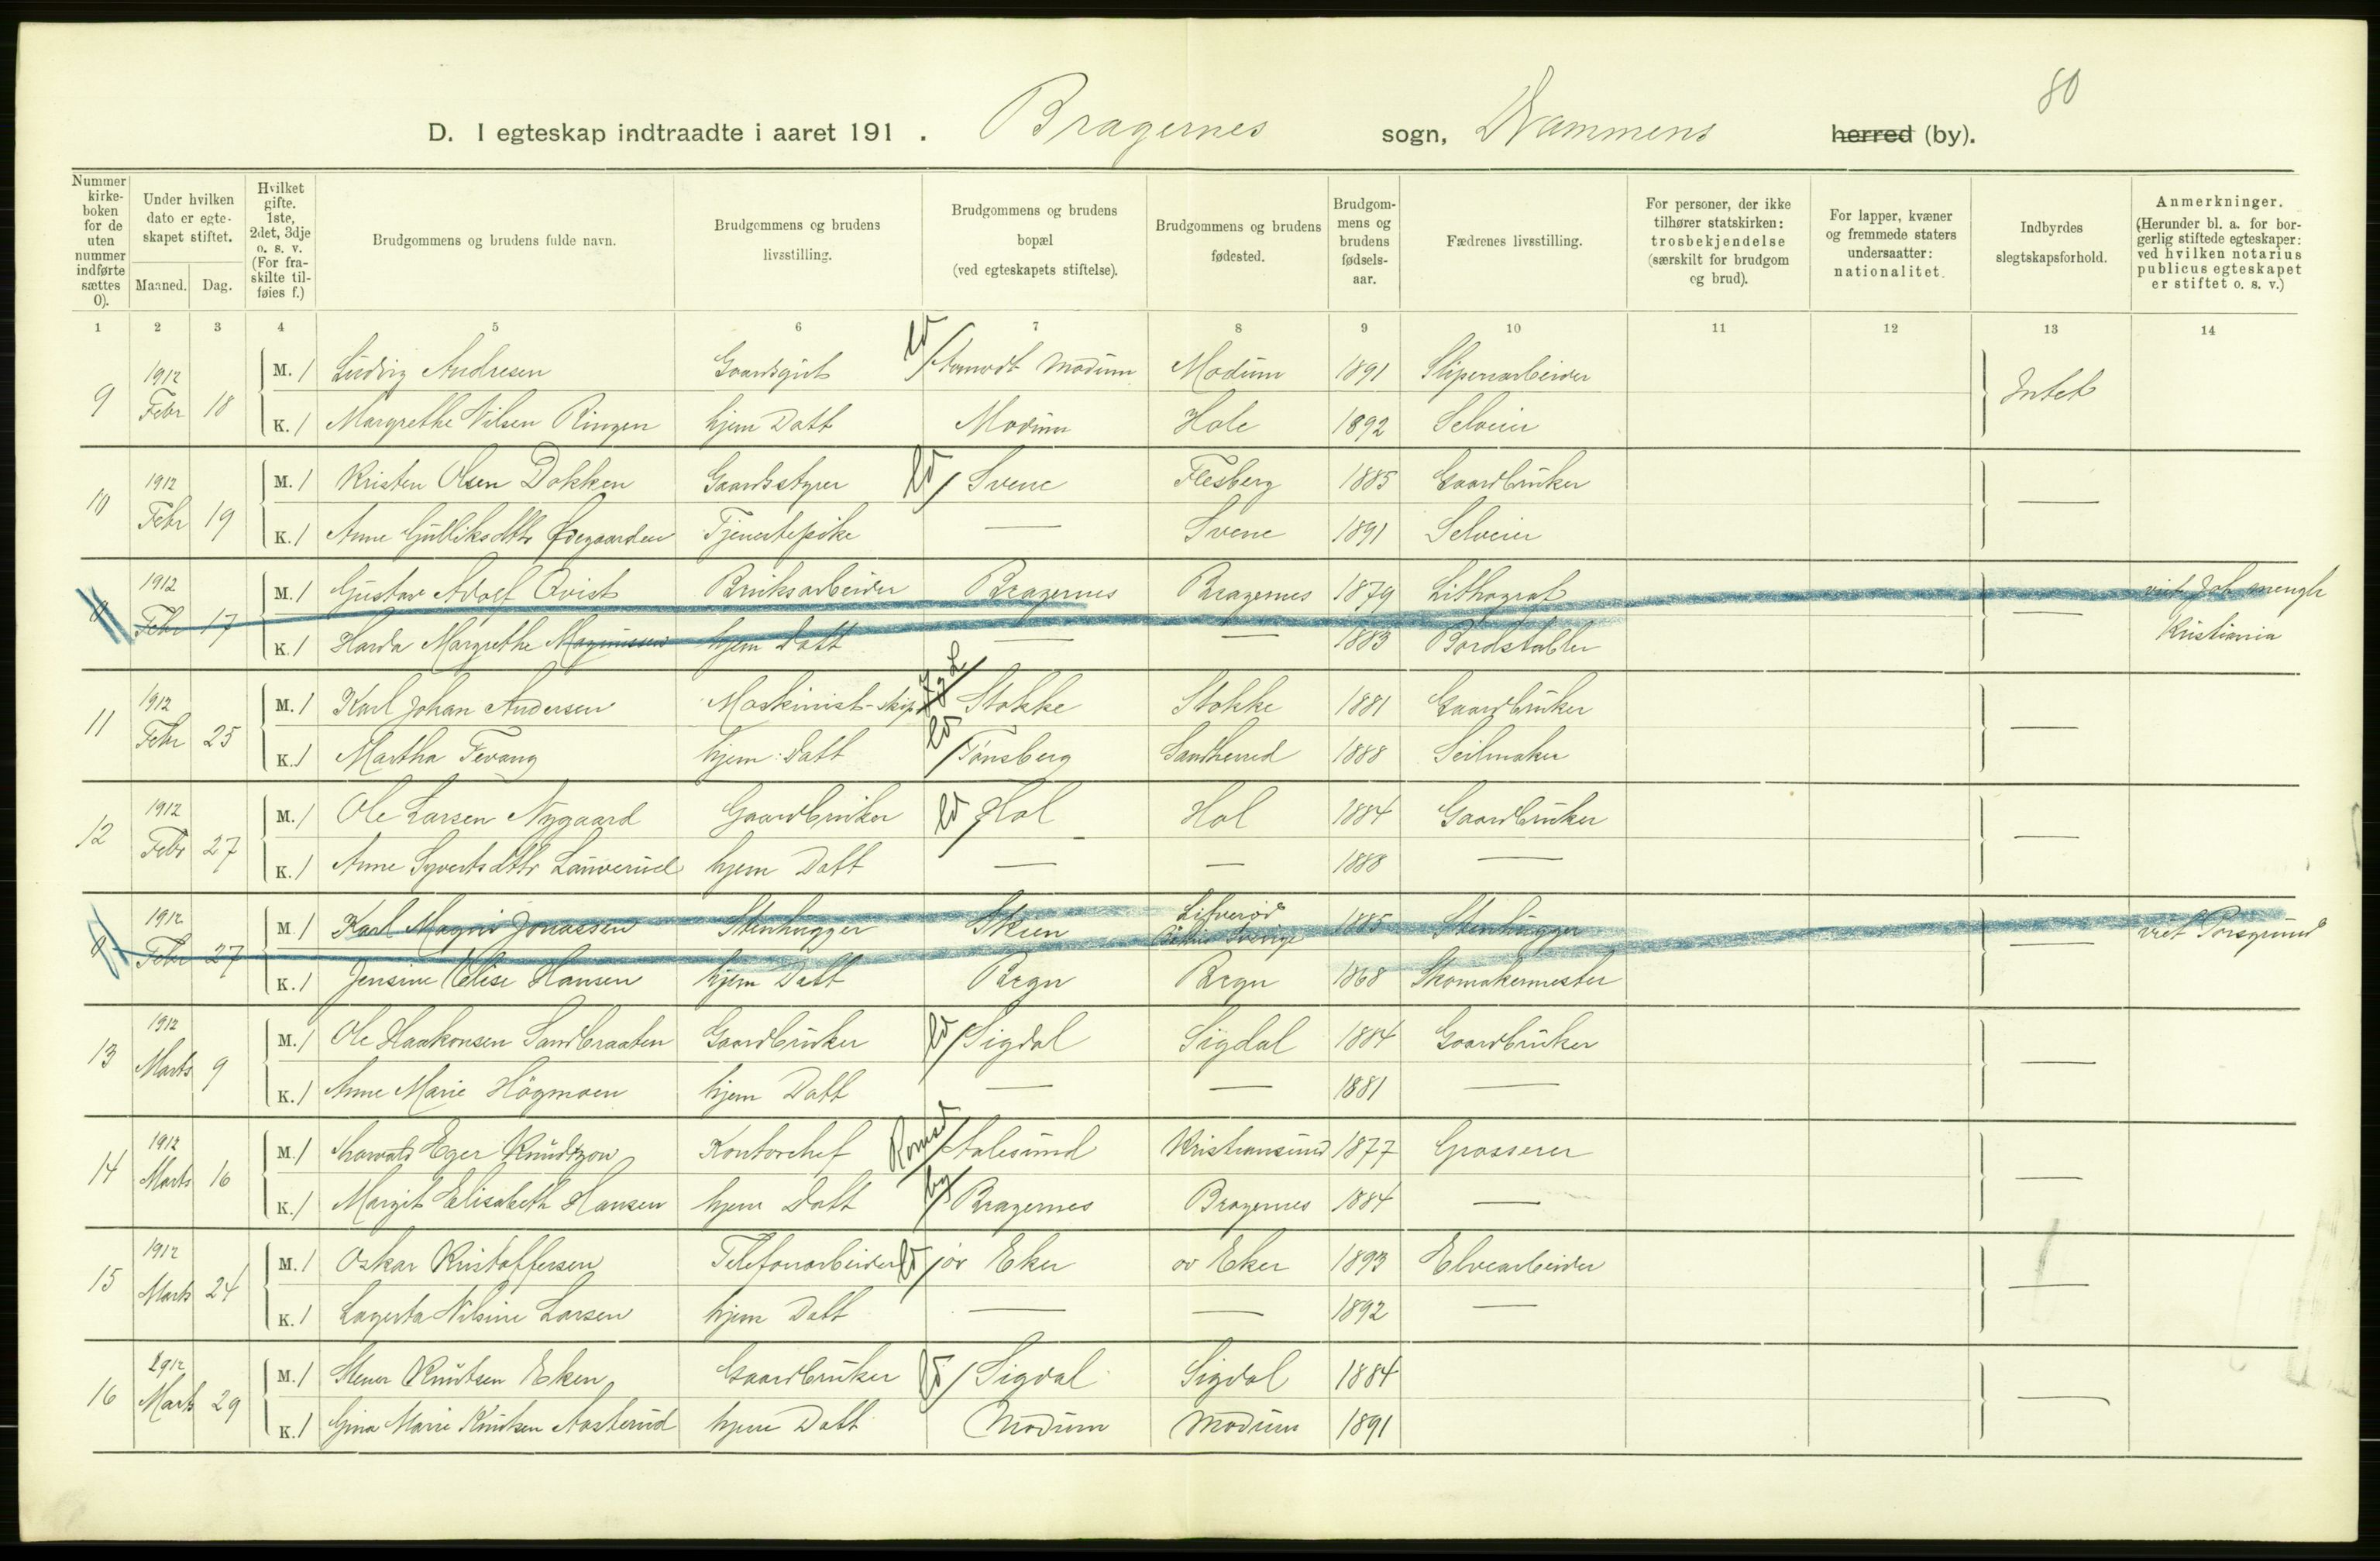 80
D. I egteskap indtraadte i aaret 191 . Bragernes sogn, Drammens herred (by).
Nummer kirkeboken for de uten nummer indførte sættes 0).
Under hvilken dato er egteskapet stiftet.
Maaned. Dag.
Hvilket gifte. 1ste, 2det, 3dje o. s. v. (For fraskilte tilføies f.)
Brudgommens og brudens fulde navn.
Brudgommens og brudens livsstilling.
Brudgommens og brudens bopæl (ved egteskapets stiftelse).
Brudgommens og brudens fødested.
Brudgommens og brudens fødselsaar.
Fædrenes livsstilling.
For personer, der ikke tilhører statskirken: trosbekjendelse (særskilt for brudgom og brud).
For lapper, kvæner og fremmede staters undersaatter: nationalitet.
Indbyrdes slegtskapsforhold.
Anmerkninger. (Herunder bl. a. for borgerlig stiftede egteskaper: ved hvilken notarius publicus egteskapet er stiftet o. s. v.)
1 2 3 4 5 6 7 8 9 10 11 12 13 14
9 1912 Febr 18 M. 1 Ludvig Andresen Gaardsgut Ld / Aamodt Modum Modum 1891 Sliperiarbeider Intet
K. 1 Margrethe Nilsen Ringen hjem Datt Modum Hole 1892 Selveier
10 1912 Febr 19 M. 1 Kristen Olsen Dokken Gaardsstyrer Ld / Svene Flesberg 1885 Gaardbruker —
K. 1 Anne Gulliksdttr Ødegaarden Tjenestepike — Svene 1891 Selveier
0 1912 Febr 17 M. 1 Gustav Adolf Qvist Bruksarbeider Bragernes Bragernes 1879 Lithograf — viet Joh menigh
K. 1 Harda Margrethe Magnussen hjem Datt — — 1883 Bordstabler Kristiania
11 1912 Febr 25 M. 1 Karl Johan Andersen Maskinist-skip J&L / Stokke Stokke 1881 Gaardbruker —
K. 1 Martha Tevang hjem. Datt Ld / Tønsberg Sandherred 1888 Seilmaker
12 1912 Febr 27 M. 1 Ole Larsen Nygaard Gaardbruker Ld / Hol Hol 1884 Gaardbruker —
K. 1 Anne Syvertsdttr Lauverud hjem Datt — — 1888 —
0 1912 Febr 27 M. 1 Karl Magni Jonassen Stenhugger Skien Sverige 1885 Stenhugger — viet Porsgrund
K. 1 Jensine Elise Hansen hjem Datt Bregn Bregn 1868 Skomakermester
13 1912 Marts 9 M. 1 Ole Haakonsen Sandbraaten Gaardbruker Ld / Sigdal Sigdal 1884 Gaardbruker —
K. 1 Anne Marie Högmoen hjem Datt — — 1881 —
14 1912 Marts 16 M. 1 Thorvald Eger Knudtzon Kontorchef Romsd / Aalesund Kristiansund 1877 Grosserer —
K. 1 Margit Elisabeth Hansen hjem Datt by / Bragernes Bragernes 1884 —
15 1912 Marts 24 M. 1 Oskar Kristoffersen Telefonarbeider Ld / öv Eker öv Eker 1893 Elvearbeider —
K. 1 Lagerta Nilsine Larsen hjem Datt — — 1892 —
16 1912 Marts 29 M. 1 Stener Knutsen Eken Gaardbruker Ld / Sigdal Sigdal 1884 —
K. 1 Gina Marie Knutsen Aasterud hjem Datt Modum Modum 1891